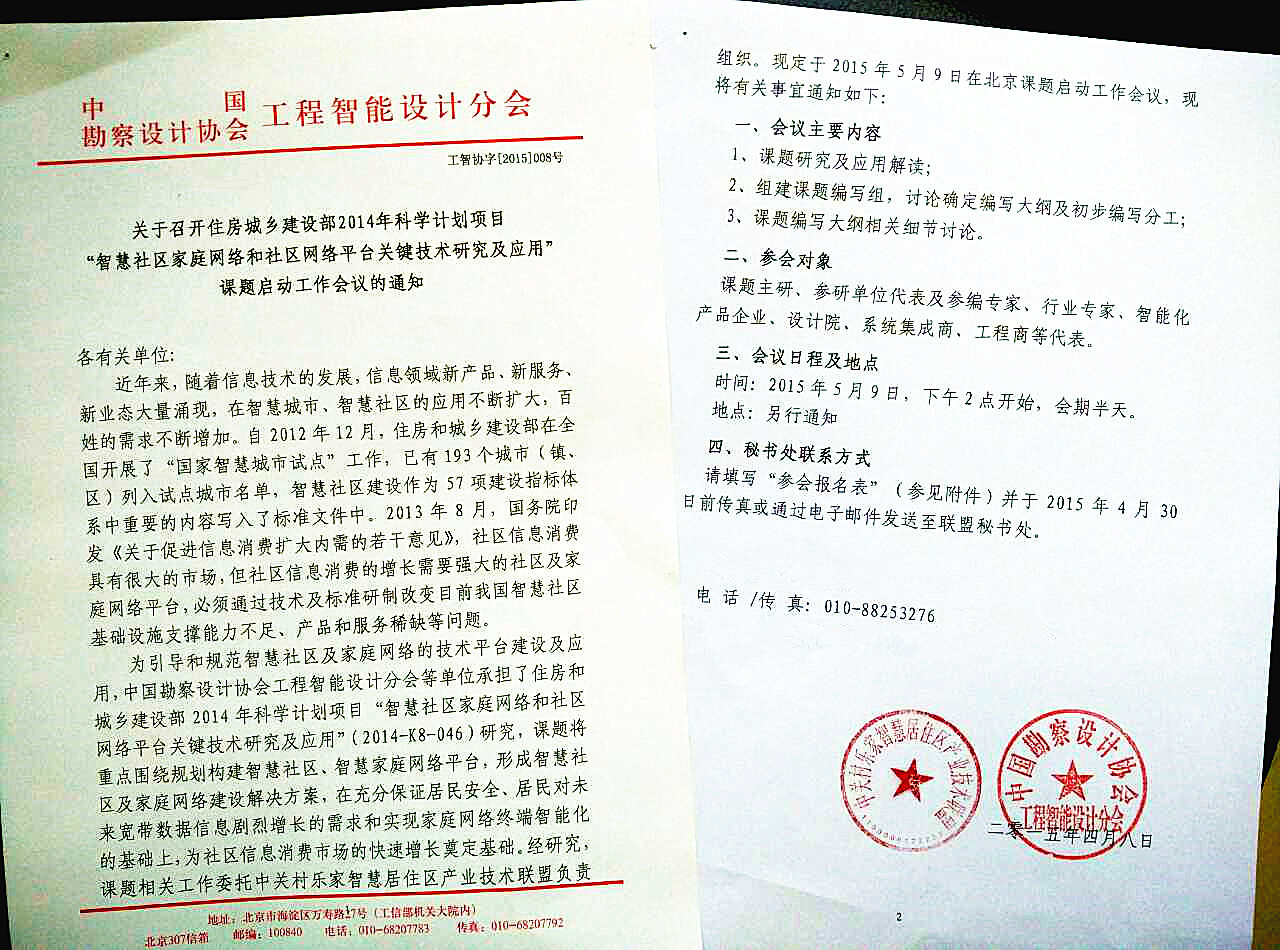 中国
勘察设计协会 工程智能设计分会
工智协字[2015]008号
关于召开住房城乡建设部2014年科学计划项目
“智慧社区家庭网络和社区网络平台关键技术研究及应用”
课题启动工作会议的通知
各有关单位:
近年来,随着信息技术的发展,信息领域新产品、新服务、
新业态大量涌现，在智慧城市、智慧社区的应用不断扩大，百
姓的需求不断增加。自 2012 年 12 月，住房和城乡建设部在全
国开展了“国家智慧城市试点”工作，已有 193 个城市（镇、
区）列入试点城市名单，智慧社区建设作为 57 项建设指标体
系中重要的内容写入了标准文件中。2013 年 8 月，国务院印
发《关于促进信息消费扩大内需的若干意见》，社区信息消费
具有很大的市场,但社区信息消费的增长需要强大的社区及家
庭网络平台,必须通过技术及标准研制改变目前我国智慧社区
基础设施支撑能力不足、产品和服务稀缺等问题。
为引导和规范智慧社区及家庭网络的技术平台建设及应
用,中国勘察设计协会工程智能设计分会等单位承担了住房和
城乡建设部 2014 年科学计划项目“智慧社区家庭网络和社区
网络平台关键技术研究及应用”(2014-K8-046)研究，课题将
重点围绕规划构建智慧社区、智慧家庭网络平台，形成智慧社
区及家庭网络建设解决方案，在充分保证居民安全、居民对未
来宽带数据信息剧烈增长的需求和实现家庭网络终端智能化
的基础上,为社区信息消费市场的快速增长奠定基础。经研究，
课题相关工作委托中关村乐家智慧居住区产业技术联盟负责
地址：北京市海淀区万寿路27号（工信部机关大院内）
北京307信箱 邮编：100840 电话：010-68207783 传真：010-68207792
组织。现定于 2015 年 5 月 9 日在北京课题启动工作会议，现
将有关事宜通知如下：
一、会议主要内容
1、课题研究及应用解读；
2、组建课题编写组，讨论确定编写大纲及初步编写分工；
3、课题编写大纲相关细节讨论。
二、参会对象
课题主研、参研单位代表及参编专家、行业专家、智能化
产品企业、设计院、系统集成商、工程商等代表。
三、会议日程及地点
时间：2015 年 5 月 9 日，下午 2 点开始，会期半天。
地点：另行通知
四、秘书处联系方式
请填写“参会报名表”（参见附件）并于 2015 年 4 月 30
日前传真或通过电子邮件发送至联盟秘书处。
电 话 /传 真: 010-88253276
中关村乐家智慧居住区产业技术联盟
中国勘察设计协会
工程智能设计分会
二零一五年四月八日
2